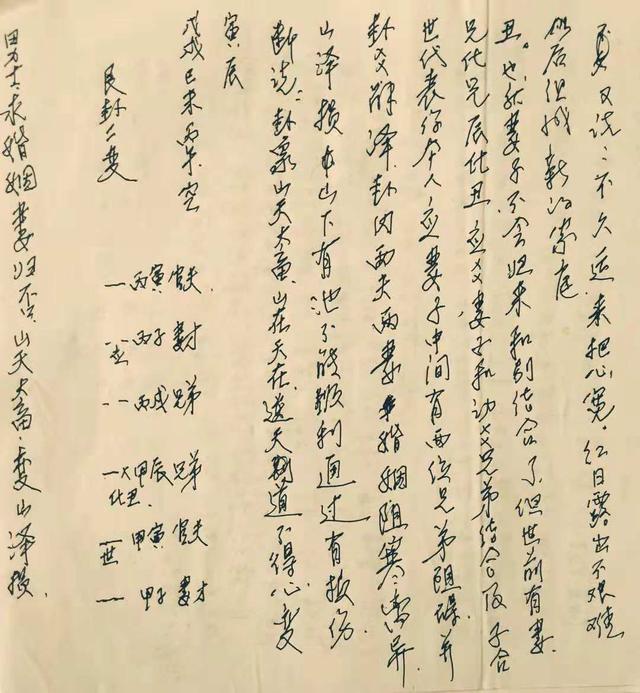 男士求婚姻妻归否 山天大畜变山泽损.
艮卦二变
丙寅官夫
丙子妻才
应
丙戌兄弟
甲辰兄弟
化丑
甲寅官夫
世
甲子妻才
戊戌己未丙午空
寅辰
断说:卦象山天大畜山在天在 天 道不得心变
山泽损 山下有池不能顺利通过有损伤.
卦爻 泽卦内两夫两妻 婚姻阻塞:离异.
世代表你本人应妻子中间有两位兄弟阻碍并
兄化兄辰化丑应爻妻子和动爻兄弟结合及子合
丑。也就妻子不会归来和别结合了但世前有妻
以后组成新的家庭
又说:不久远来把心宽.红日露出不艰难